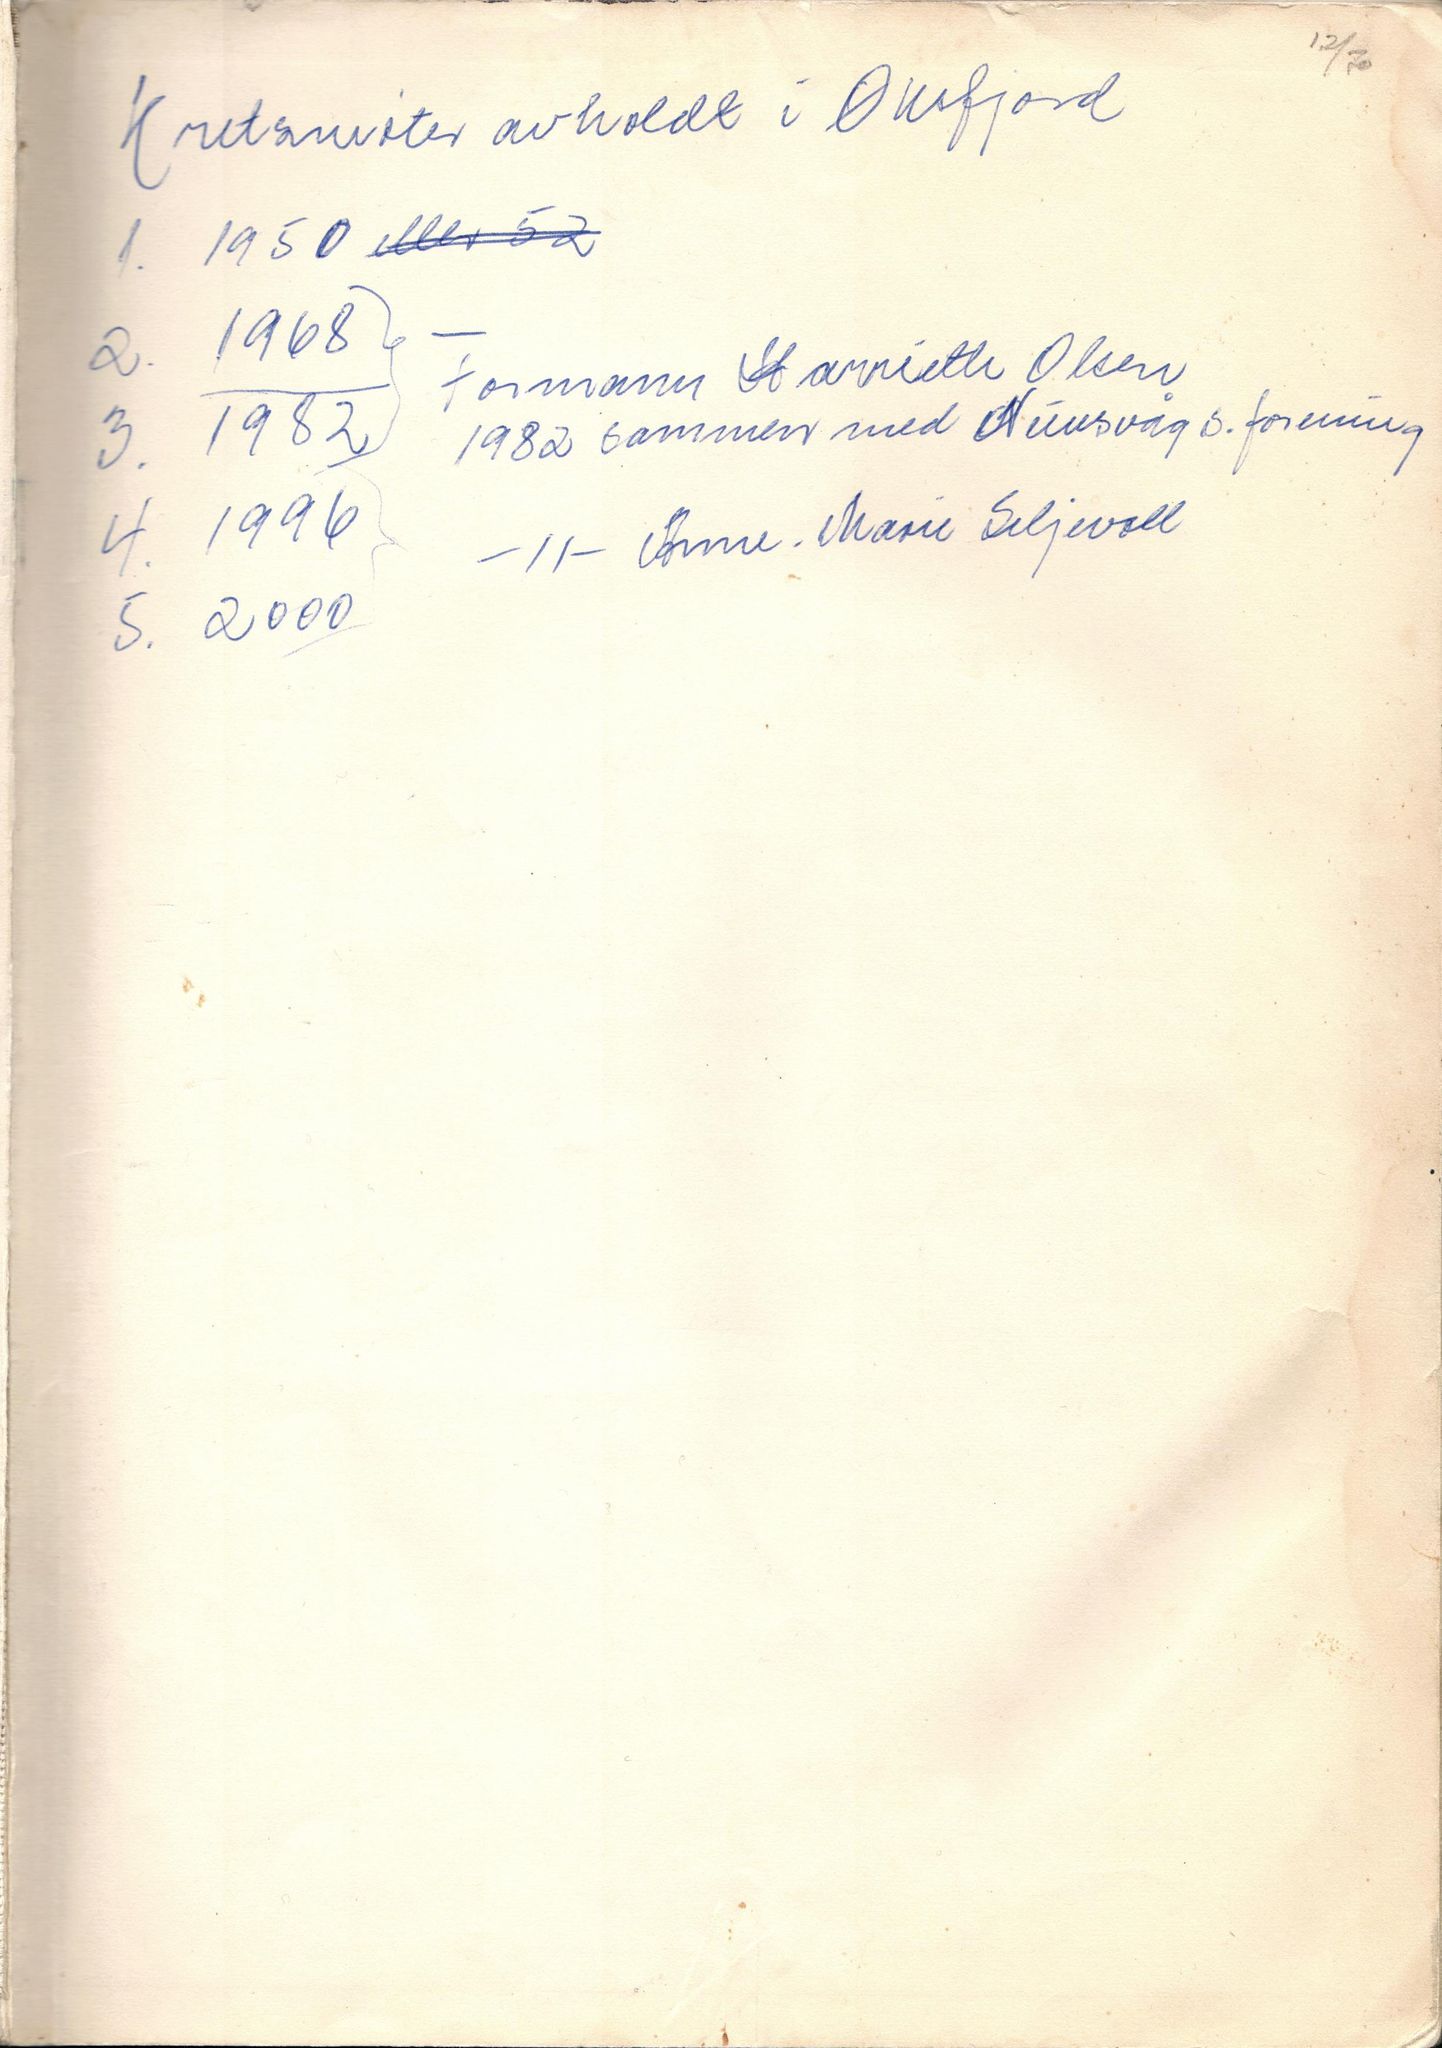 12/70
Kretsmøter avholdt i Øksfjord
1. 1950 eller 52
2. 1968 } —
Formann Harriette Olsen
3. 1982
1982 sammen med Nuvsvåg s. forening
4. 1996 }
—11— Anne-Marie Seljevoll
5. 2000